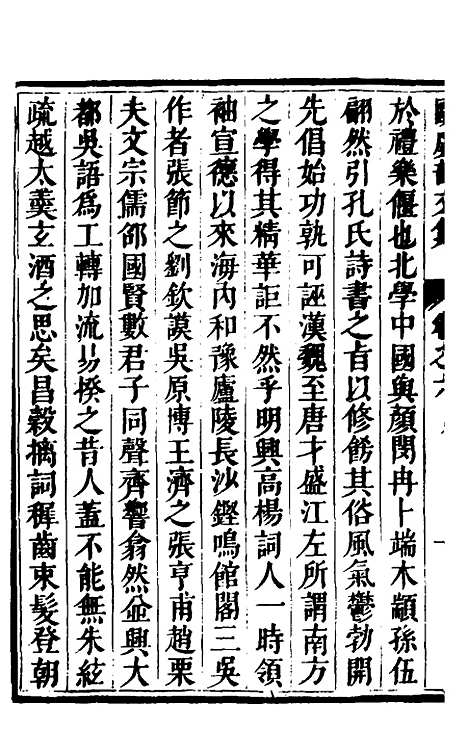 於禮樂偃也北學中國與顏閔冉卜端木顓孫伍
翩然引孔氏詩書之旨以修飭其俗風氣鬱勃開
先倡始功孰可誣漢魏至唐才盛江左所謂南方
之學得其精華詎不然乎明興高楊詞人一時領
袖宣德以來海內和豫廬陵長沙鏗鳴館閣三吳
作者張節之劉欽謨吳原博王濟之張亨甫趙栗
夫文宗儒邵國賢數君子同聲齊響翕然並興大
都吳語爲工轉加流易揆之昔人蓋不能無朱絃
疏越太羹玄酒之思矣昌穀摛詞穉齒束髮登朝